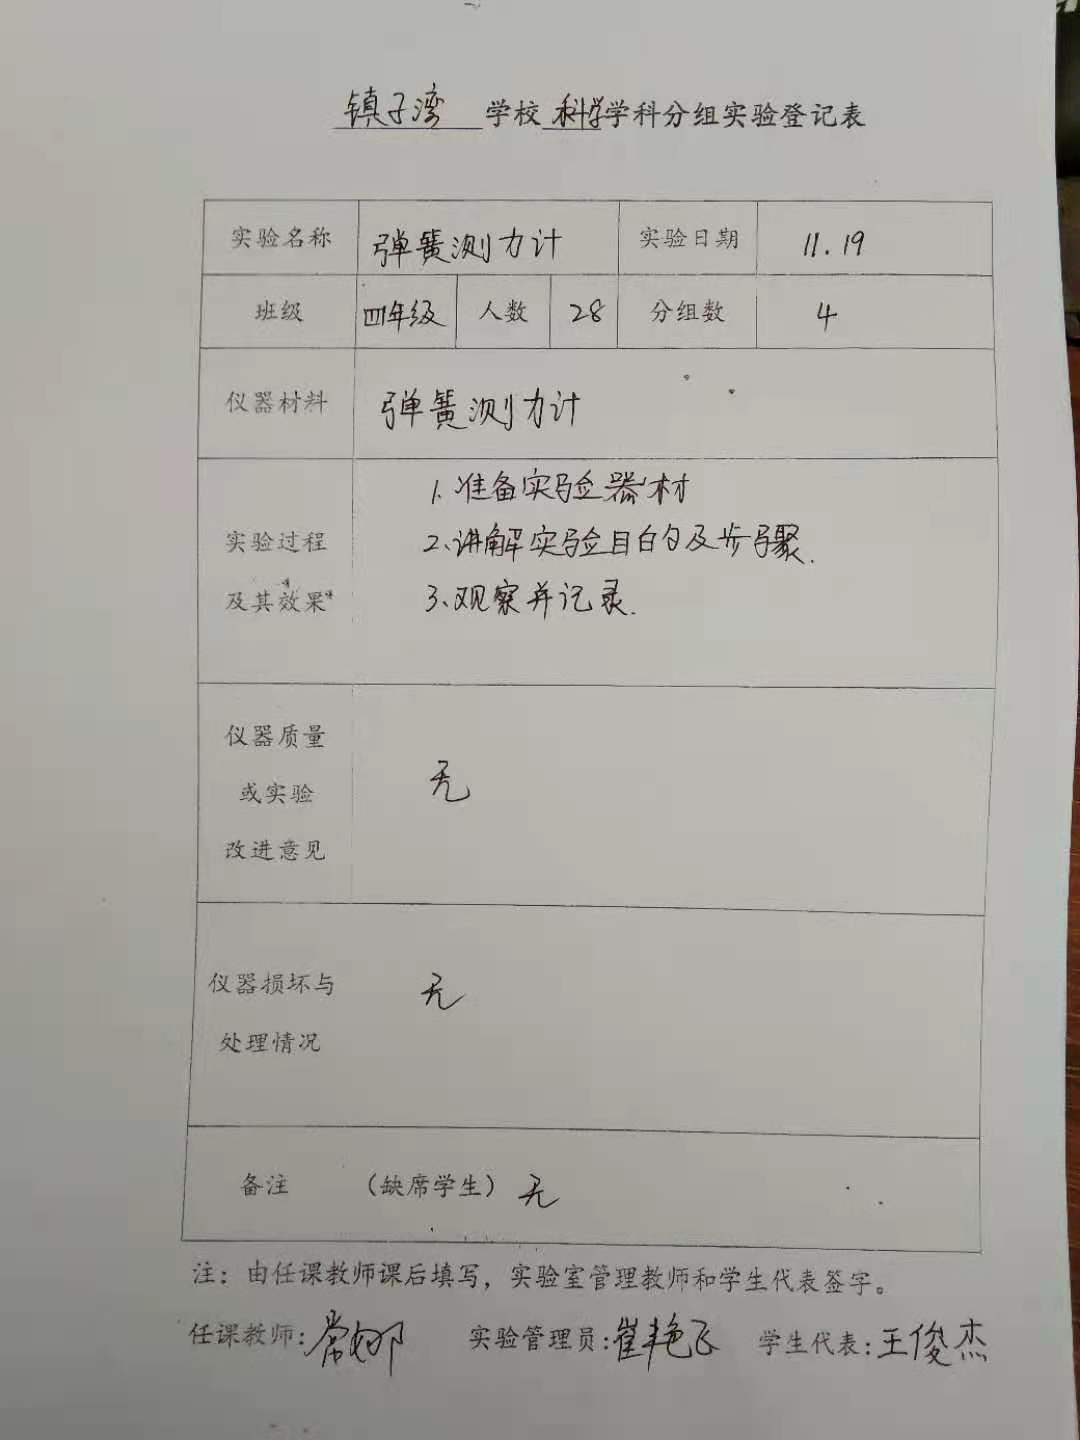 镇子湾 学校 科学 学科分组实验登记表
实验名称 弹簧测力计 实验日期 11.19
班级 四年级 人数 28 分组数 4
仪器材料 弹簧测力计
1.准备实验器材
实验过程 2、讲解实验目的及步骤.
及其效果 3、观察并记录.
仪器质量
或实验 无
改进意见
仪器损坏与 无
处理情况
备注 （缺席学生） 无
注：由任课教师课后填写，实验室管理教师和学生代表签字。
任课教师:常娜 实验管理员:崔艳飞 学生代表:王俊杰